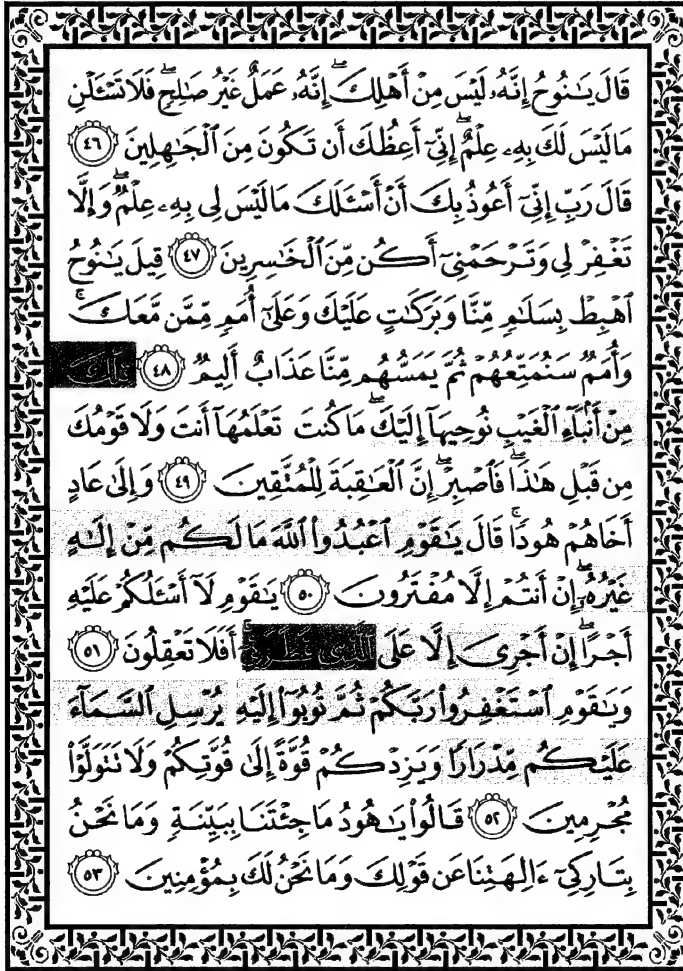 قَالَ يَٰنُوحُ إِنَّهُۥ لَيْسَ مِنْ أَهْلِكَ ۖ إِنَّهُۥ عَمَلٌ غَيْرُ صَٰلِحٍ ۖ فَلَا تَسْـَٔلْنِ
مَا لَيْسَ لَكَ بِهِۦ عِلْمٌ ۖ إِنِّىٓ أَعِظُكَ أَن تَكُونَ مِنَ ٱلْجَٰهِلِينَ ٤٦
قَالَ رَبِّ إِنِّىٓ أَعُوذُ بِكَ أَنْ أَسْـَٔلَكَ مَا لَيْسَ لِى بِهِۦ عِلْمٌ ۖ وَإِلَّا
تَغْفِرْ لِى وَتَرْحَمْنِىٓ أَكُن مِّنَ ٱلْخَٰسِرِينَ ٤٧ قِيلَ يَٰنُوحُ
ٱهْبِطْ بِسَلَٰمٍ مِّنَّا وَبَرَكَٰتٍ عَلَيْكَ وَعَلَىٰٓ أُمَمٍ مِّمَّن مَّعَكَ ۚ
وَأُمَمٌ سَنُمَتِّعُهُمْ ثُمَّ يَمَسُّهُم مِّنَّا عَذَابٌ أَلِيمٌ ٤٨ تِلْكَ
مِنْ أَنۢبَآءِ ٱلْغَيْبِ نُوحِيهَآ إِلَيْكَ ۖ مَا كُنتَ تَعْلَمُهَآ أَنتَ وَلَا قَوْمُكَ
مِن قَبْلِ هَٰذَا ۖ فَٱصْبِرْ ۖ إِنَّ ٱلْعَٰقِبَةَ لِلْمُتَّقِينَ ٤٩ وَإِلَىٰ عَادٍ
أَخَاهُمْ هُودًا ۚ قَالَ يَٰقَوْمِ ٱعْبُدُوا۟ ٱللَّهَ مَا لَكُم مِّنْ إِلَٰهٍ
غَيْرُهُۥٓ ۖ إِنْ أَنتُمْ إِلَّا مُفْتَرُونَ ٥٠ يَٰقَوْمِ لَآ أَسْـَٔلُكُمْ عَلَيْهِ
أَجْرًا ۖ إِنْ أَجْرِىَ إِلَّا عَلَى ٱلَّذِى فَطَرَنِىٓ ۚ أَفَلَا تَعْقِلُونَ ٥١
وَيَٰقَوْمِ ٱسْتَغْفِرُوا۟ رَبَّكُمْ ثُمَّ تُوبُوٓا۟ إِلَيْهِ يُرْسِلِ ٱلسَّمَآءَ
عَلَيْكُم مِّدْرَارًا وَيَزِدْكُمْ قُوَّةً إِلَىٰ قُوَّتِكُمْ وَلَا تَتَوَلَّوْا۟
مُجْرِمِينَ ٥٢ قَالُوا۟ يَٰهُودُ مَا جِئْتَنَا بِبَيِّنَةٍ وَمَا نَحْنُ
بِتَارِكِىٓ ءَالِهَتِنَا عَن قَوْلِكَ وَمَا نَحْنُ لَكَ بِمُؤْمِنِينَ ٥٣